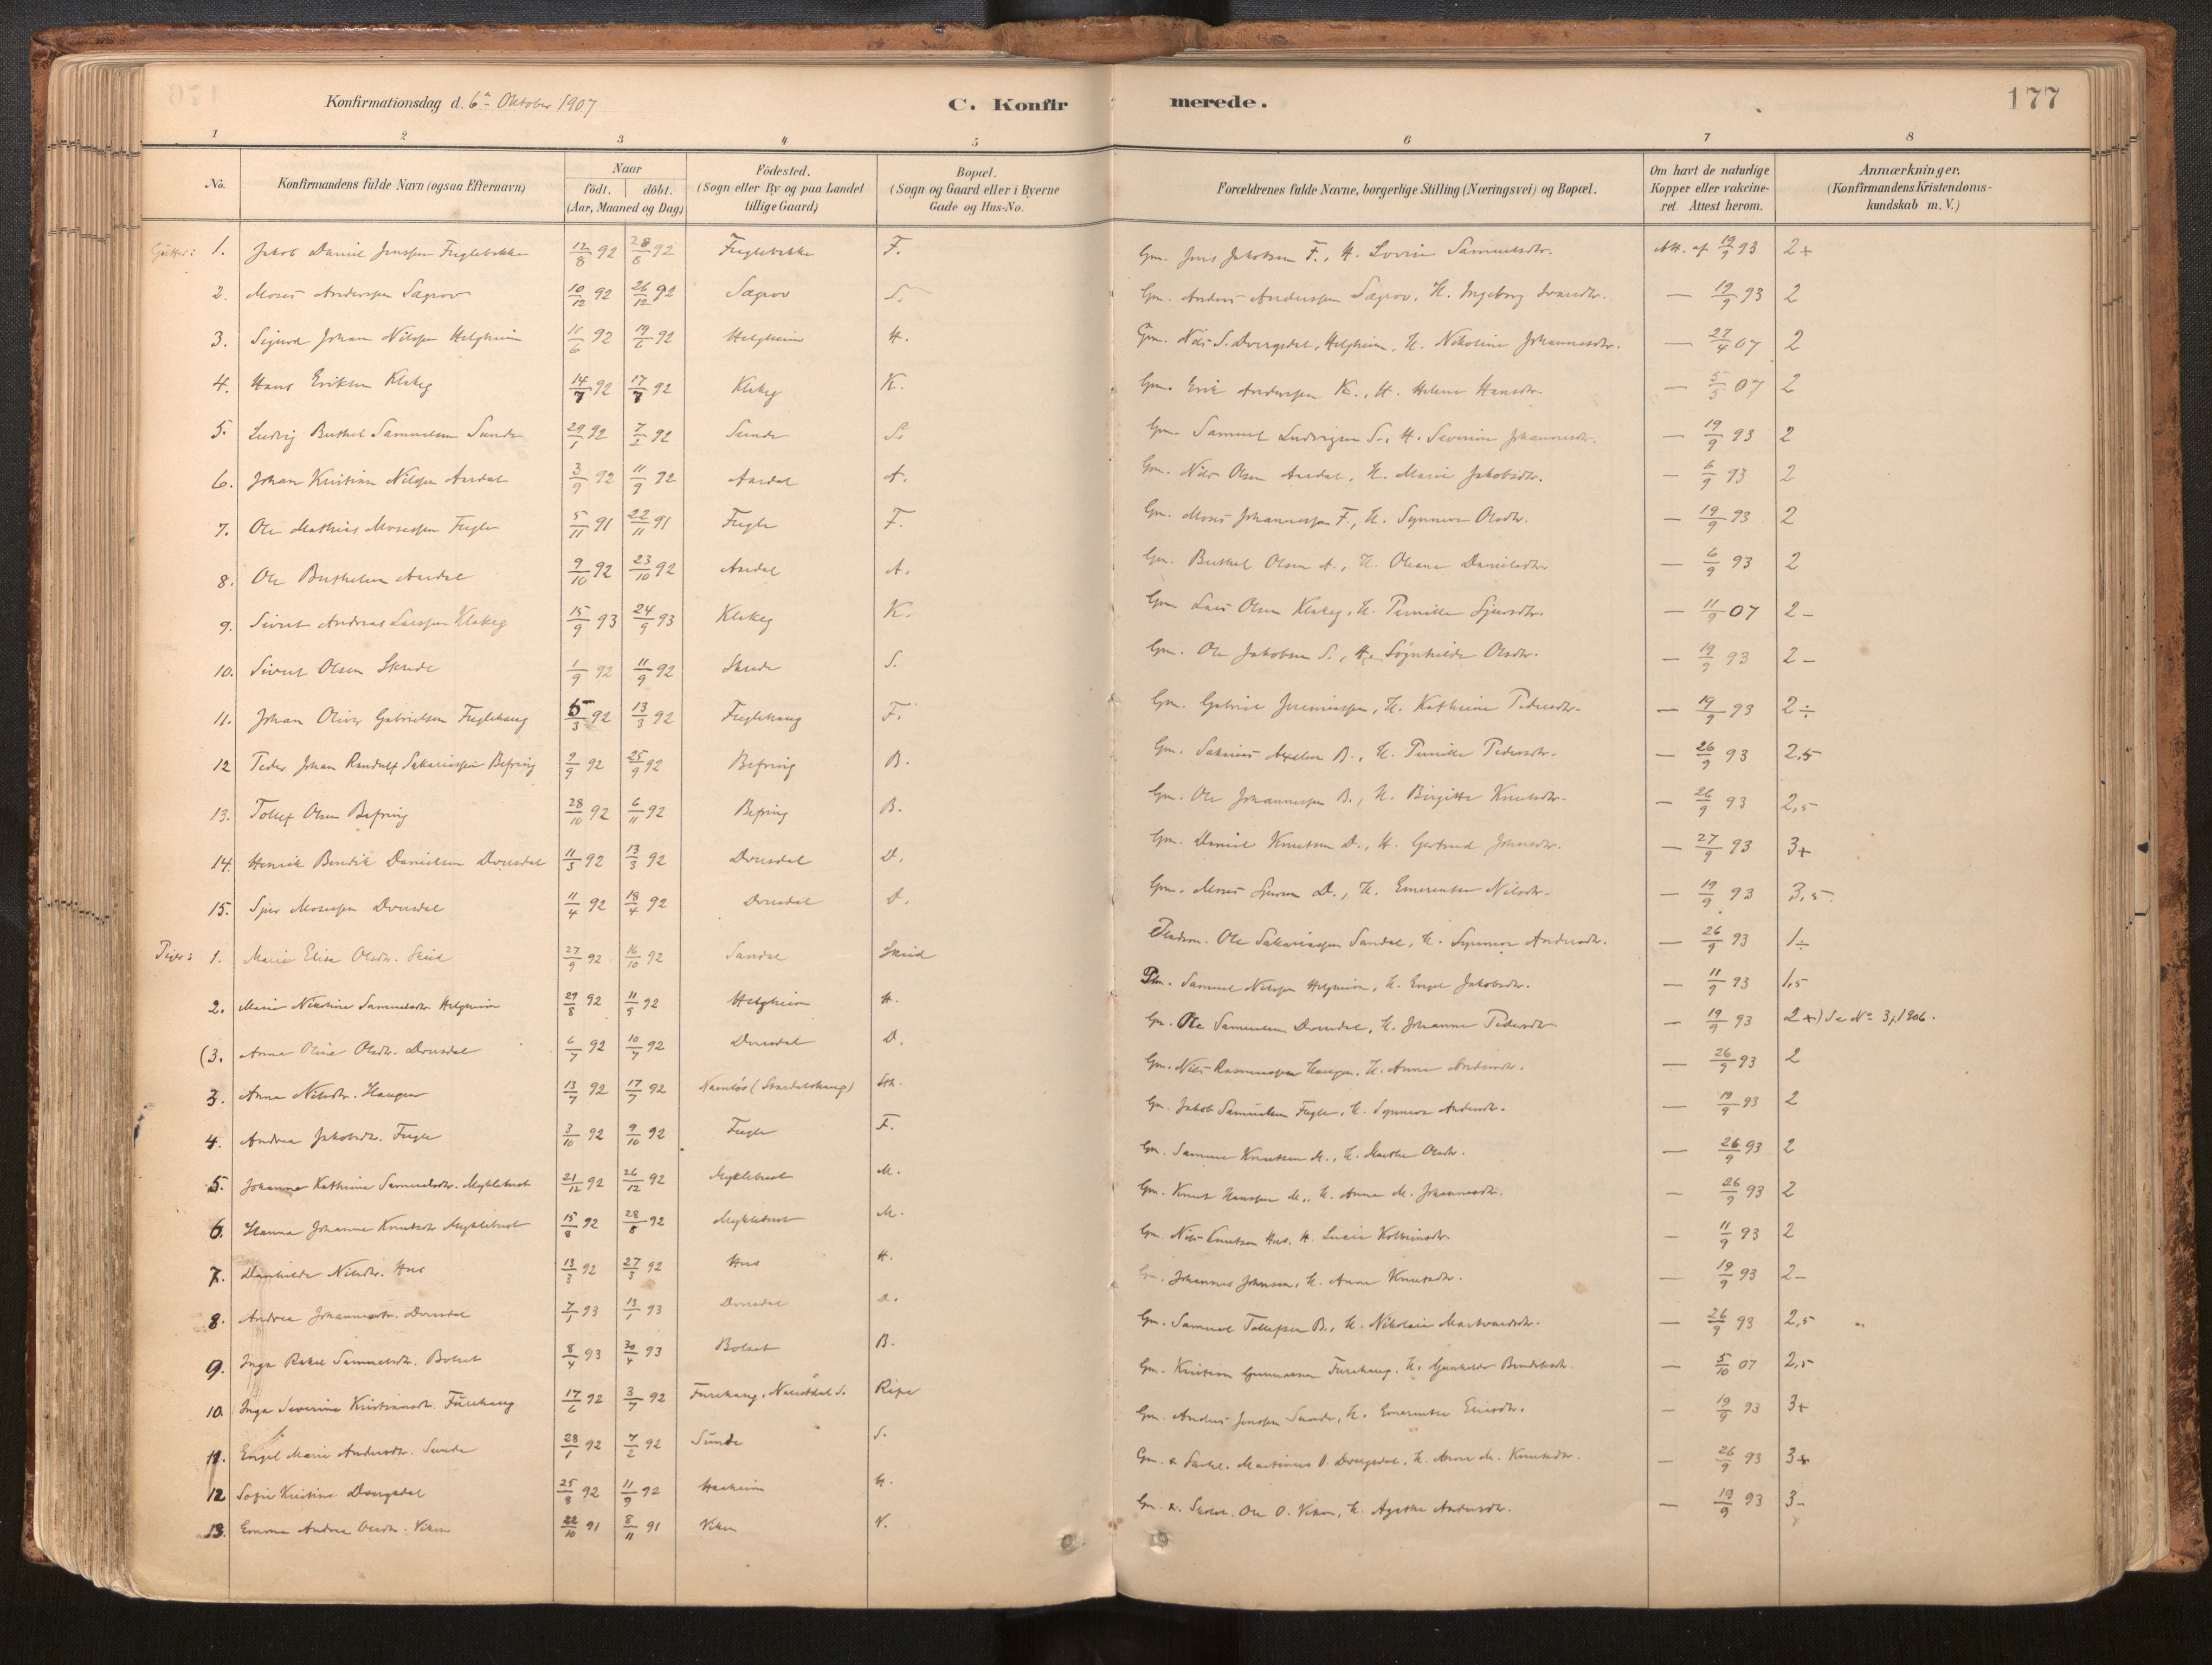 Konfirmationsdag d. 6te Oktober 1907
C. Konfirmerede.
177
1 2 3 4 5 6 7 8
No. Konfirmandens fulde Navn (ogsaa Efternavn) Naar födt. döbt. (Aar, Maaned og Dag) Födested. (Sogn eller By og paa Landet tillige Gaard) Bopæl. (Sogn og Gaard eller i Byerne Gade og Hus-No. Forældrenes fulde Navne, borgerlige Stilling (Næringsvei) og Bopæl. Om havt de naturlige Kopper eller vakcineret. Attest herom. Anmærkninger, (Konfirmandens Kristendomskundskab m. V.)
Gutter: 1. Jakob Daniel Jenssen Fuglebakke 12/8 92 28/8 92 Fuglebakke F. Gm. Jens Jakobsen F., H. Lovise Samuelsdtr. Att. af 19/9 93 2+
2. Moses Anderssen Sægrov 10/12 92 26/12 92 Sægrov S. Gm. Anders Anderssen Sægrov, H. Ingeborg Ivarsdtr. — 19/9 93 2
3. Sigurd Johan Nilssen Helgheim 11/6 92 19/6 92 Helgheim H. Gm. Nils S. Dvergsdal, Helgheim, H. Nikoline Johannesdtr. — 27/4 07 2
4. Hans Eriksen Klakeg 14/7 92 17/7 92 Klakeg K. Gm. Erik Anderssen K., H. Helene Hansdtr. — 5/5 07 2
5. Ludvig Buthel Samuelsen Sunde 29/1 92 7/2 92 Sunde S. Gm. Samuel Ludvigsen S., H. Severine Johannesdtr. — 19/9 93 2
6. Johan Kristian Nilssen Aardal 3/9 92 11/9 92 Aardal A. Gm. Nils Olsen Aardal, H. Marie Jakobsdtr. — 6/9 93 2
7. Ole Mathias Mosessen Fugle 5/11 91 22/11 91 Fugle F. Gm. Moses Johannessen F., H. Synneve Olsdtr. — 19/9 93 2
8. Ole Buthelsen Aardal 9/10 92 23/10 92 Aardal A. Gm. Buthel Olsen A., H. Oleane Danielsdtr. — 6/9 93 2
9. Sivert Andreas Larssen Klakeg 15/9 93 24/9 93 Klakeg K. Gm. Lars Olsen Klakeg, H. Pernille Sjursdtr. — 11/9 07 2-
10. Sivert Olsen Skrede 1/9 92 11/9 92 Skrede S. Gm. Ole Jakobsen S., H. Søgnhilde Olsdtr. — 19/9 93 2-
11. Johan Oliver Gabrielsen Fuglehaug 6/3 92 13/3 92 Fuglehaug F. Gm. Gabriel Jeremiassen, H. Kathrine Pedersdtr. — 19/9 93 2÷
12 Peder Johan Randulf Sakariassen Befring 9/9 92 25/9 92 Befring B. Gm. Sakarias Axelsen B., H. Pernille Pedersdtr. — 26/9 93 2,5
13. Tollef Olsen Befring 28/10 92 6/11 92 Befring B. Gm. Ole Johannessen B., H. Birgitte Knutsdtr. — 26/9 93 2,5
14. Henrik Bendik Danielsen Dvergsdal 11/3 92 13/3 92 D. Gm. Daniel Knutsen D., H. Gertrud Johnsdtr. — 27/9 93 3+
15. Sjur Mosessen 11/4 92 18/4 92 D. Gm. Moses Sjursen D., H. Emerentse Nilsdtr. — 19/9 93 3,5
Piger: 1. Marie Elise Olsdtr. Skrid 27/9 92 16/10 92 Sandal Skrid Pladsm. Ole Sakariassen Sandal, H. Synneve Andersdtr. — 26/9 93 1÷
2. Marie Nikoline Samuelsdtr. Helgheim 29/8 92 11/9 92 Helgheim H. Gm. Samuel Nilssen Helgheim, H. Engel Jakobsdtr. — 11/9 93 1,5
(3. Anna Oline Olsdtr. 6/7 92 10/7 92 D. Gm. Ole Samuelsen H. Johanne Pedersdtr. — 19/9 93 2+) Se No 3, 1906.
3. Anna Nilsdtr. Haugen 13/7 92 17/7 92 Namløs (Stardalshaug) Sth. Gm. Nils Rasmussen Haugen, H. Anna Andersdtr. — 26/9 93 2
4. Andrea Jakobsdtr. Fugle 3/10 92 9/10 92 Fugle F. Gm. Jakob Samuelsen Fugle, H. Synneve Andersdtr. — 19/9 93 2
5. Johanne Kathrine Samuelsdtr. Myklebust 21/12 92 26/12 92 Myklebust M. Gm. Samuel Knutsen M., H. Marthe Olsdtr. — 26/9 93 2
6. Hanna Johanne Knutsdtr. Myklebust 15/8 92 28/8 92 Myklebust M. Gm. Knut Hanssen M., H. Anne M. Johannesdtr. — 26/9 93 2
7. Danhilde Nilsdtr. Hus 13/3 92 27/3 92 Hus H. Gm. Nils Knutsen Hus, H. Lucie Kolbeinsdtr. — 11/9 93 2
8. Andrea Johannesdtr. 7/1 93 13/1 93 D. Gm. Johannes Johnsen, H. Anne Knutsdtr. — 19/9 93 2-
9. Inga Rakel Samuelsdtr. Bolset 8/4 93 30/4 93 Bolset B. Gm. Samuel Tollefsen B., H. Nikolaia Markvardsdtr. — 26/9 93 2,5
10. Inga Severine Kristiansdtr. Furehaug 17/6 92 3/7 92 Furehaug, Naustdal S. Ripe Gm. Kristian Gunnarsen Furehaug, H. Gunhilde Bendiksdtr. — 5/10 07 2,5
11. Engel Marie Andersdtr. Sunde 28/1 92 7/2 92 Sunde S. Gm. Anders Jenssen Sunde, H. Emerentse Eliasdtr. — 19/9 93 3+
12 Sofie Kristine Dvergsdal 25/8 92 11/9 92 H. Gm. & Martinus O. Dvergsdal, H. Anne M. Knutsdtr. — 26/9 93 3+
13. Emma Andrea Olsdtr. Viken 22/10 91 8/11 91 Viken V. Gm. & Ole O. Viken, H. Agathe Andersdtr. — 19/9 93 3-